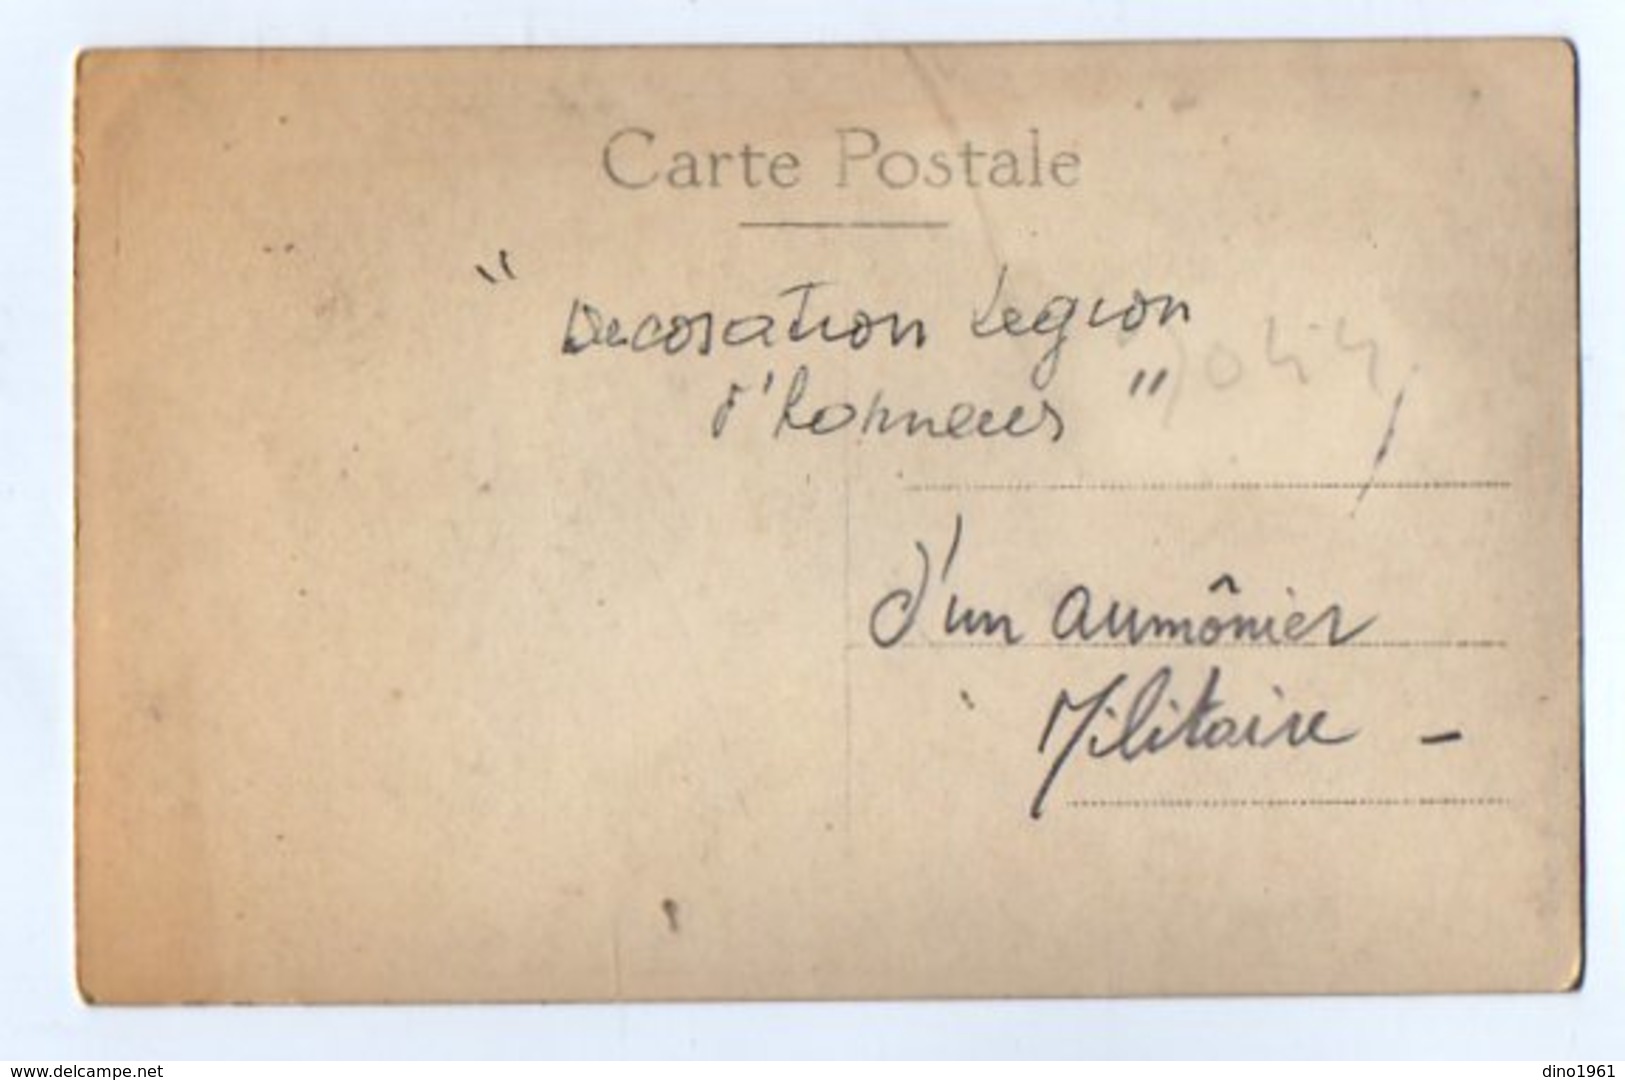 Carte Postale
" Decoration Legion
d'honneur "
d'un aumônier
Militaire -
www.delcampe.net
dino1961